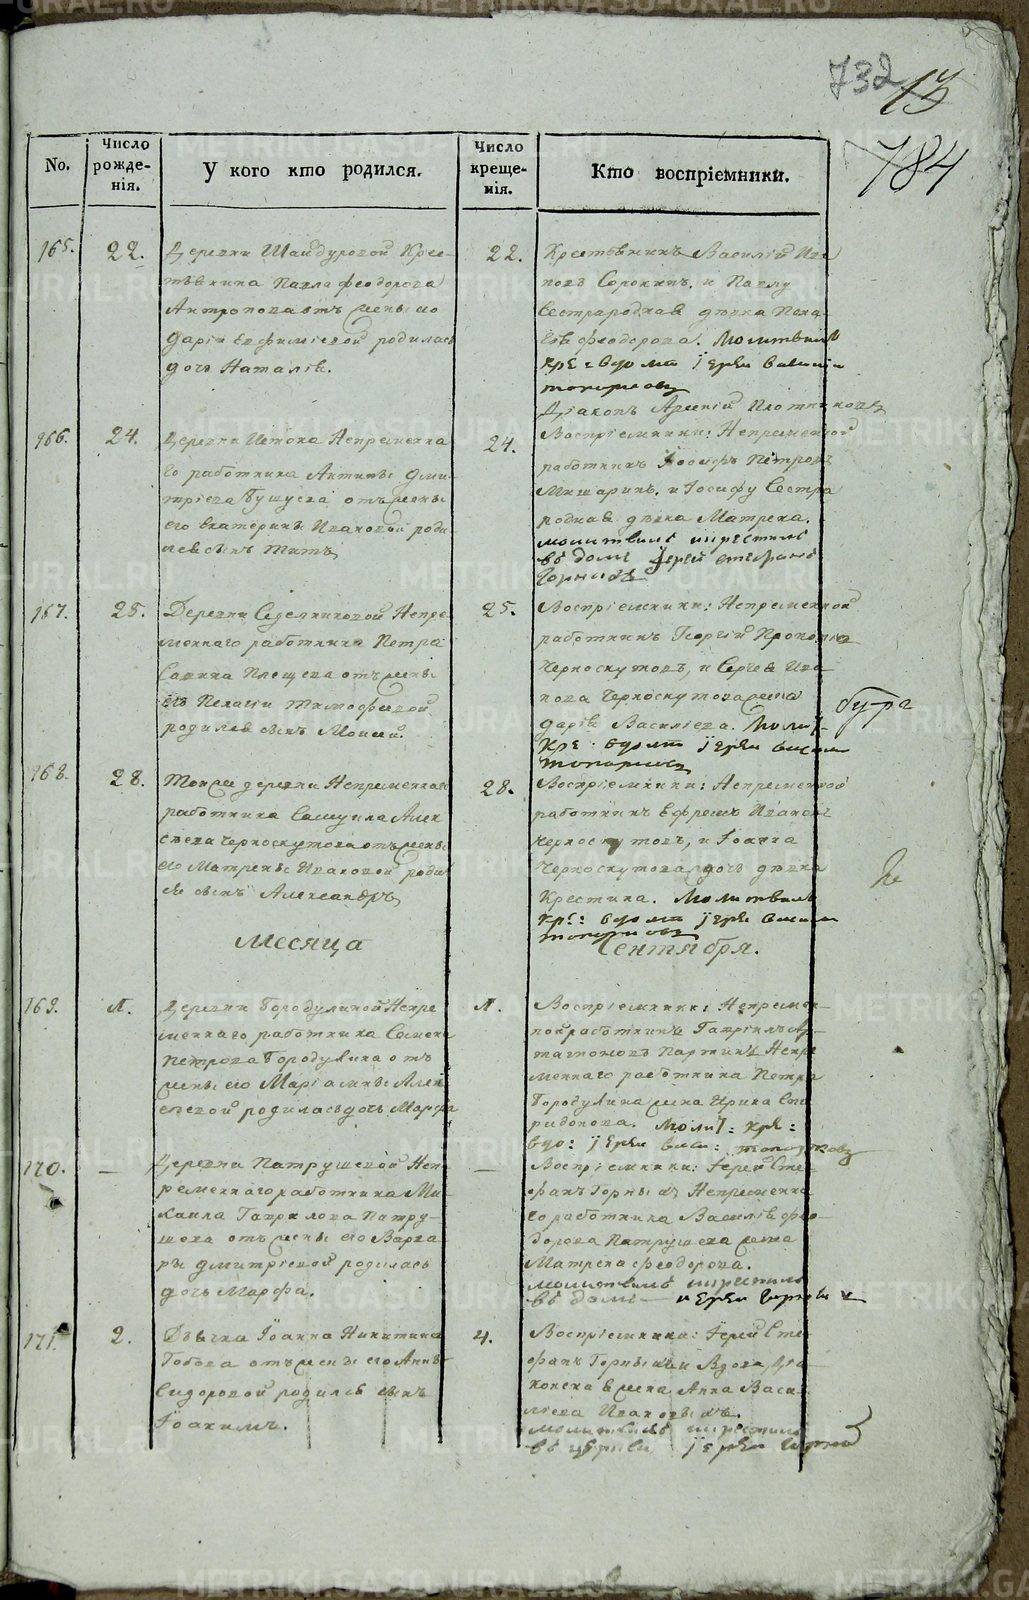 732
13
784
No.
Число рожде-
нія.
У кого кто родился.
Число креще-
нія.
Кто воспріемники.
165.
22.
Деревни Шайдуровой Крес-
тьянина Павла Феодорова
Антропова отъ жены его
Дарьи Евфиміевой родилась
дочь Наталія.
22.
Крестьянинъ Василій Ива
новъ Сорокинъ, и Павлу
Сестрародная дѣвка Пела-
гея Феодорова. Молитвилъ
кре: в дому іерей Василій
топорковъ
Діаконъ Арсеній Плотниковъ
166.
24.
Деревни Истока Непременна
го работника Антипы Дми-
тріева Бушуева отъ жены
его Екатерины Ивановой роди
лся сынъ Титъ
24.
Воспріемники: Непременной
работникъ Іосифъ Петровъ
Мишаринъ, и Іосифу Сестра
родная дѣвка Матрена.
молитвилъ и крестилъ
въ доме Іерей Стефанъ
Горныхъ
167.
25.
Деревни Седельниковой Непре
меннаго работника Петра
Савина Плещева отъ жены
его Пелагіи Тимофеевой
родился сынъ Моисей.
25.
Воспріемники: Непременной
работникъ Георгій Прокопіев
Черноскутовъ, и Сергея Ива
нова Черноскутова жена
Дарія Васильева. Молит-
кре: в дому іерей Василій
топорковъ
168.
28.
Тояже деревни Непременнаго
работника Самуила Алек
сеева Черноскутова отъ жены
его Матрены Ивановой родил
ся сынъ Александръ
28.
Воспріемники: Непременной
работникъ Ефремъ Ивановъ
Черноскутовъ, и Іоанна
Черноскутова дочь дѣвка
Крестина. Молитвилъ
кре: в дому іерей Василій
топорковъ
Месяца
Сентября.
169.
1.
Деревни Бородулиной Непре
меннаго работника Семена
Петрова Бородулина отъ
жены его Маріамны Алек
сеевой родилась дочь Марфа
1.
Воспріемники: Непремен-
ной работникъ Гавріилъ Ар-
тамоновъ Паркинъ Непре
меннаго работника Петра
Бородулина жена Ирина Спи
ридонова. Молит: кре:
в до: іерей Васи: топорковъ
170.
—
Деревни Патрушевой Неп
ременнаго работника Ми-
хаила Гаврилова Патру-
шева отъ жены его Варва-
ры Дмитріевой родилась
дочь Марфа.
—
Воспріемники: Іерей Сте-
фанъ Горныхъ Непременна
го работника Василія Фео-
дорова Патрушева жена
Матрена Феодорова.
молитвилъ и крестилъ
въ доме — іерей Горныхъ
171.
2.
Дьячка Іоанна Никитина
Попова отъ жены его Анны
Сидоровой родился сынъ
Іоакимъ.
4.
Воспріемники: Іерей Сте
фанъ Горныхъ и Вдова Діа-
конская жена Анна Васи-
льева Ивановыхъ.
молитвилъ и крестилъ
въ церкви іерей Горных